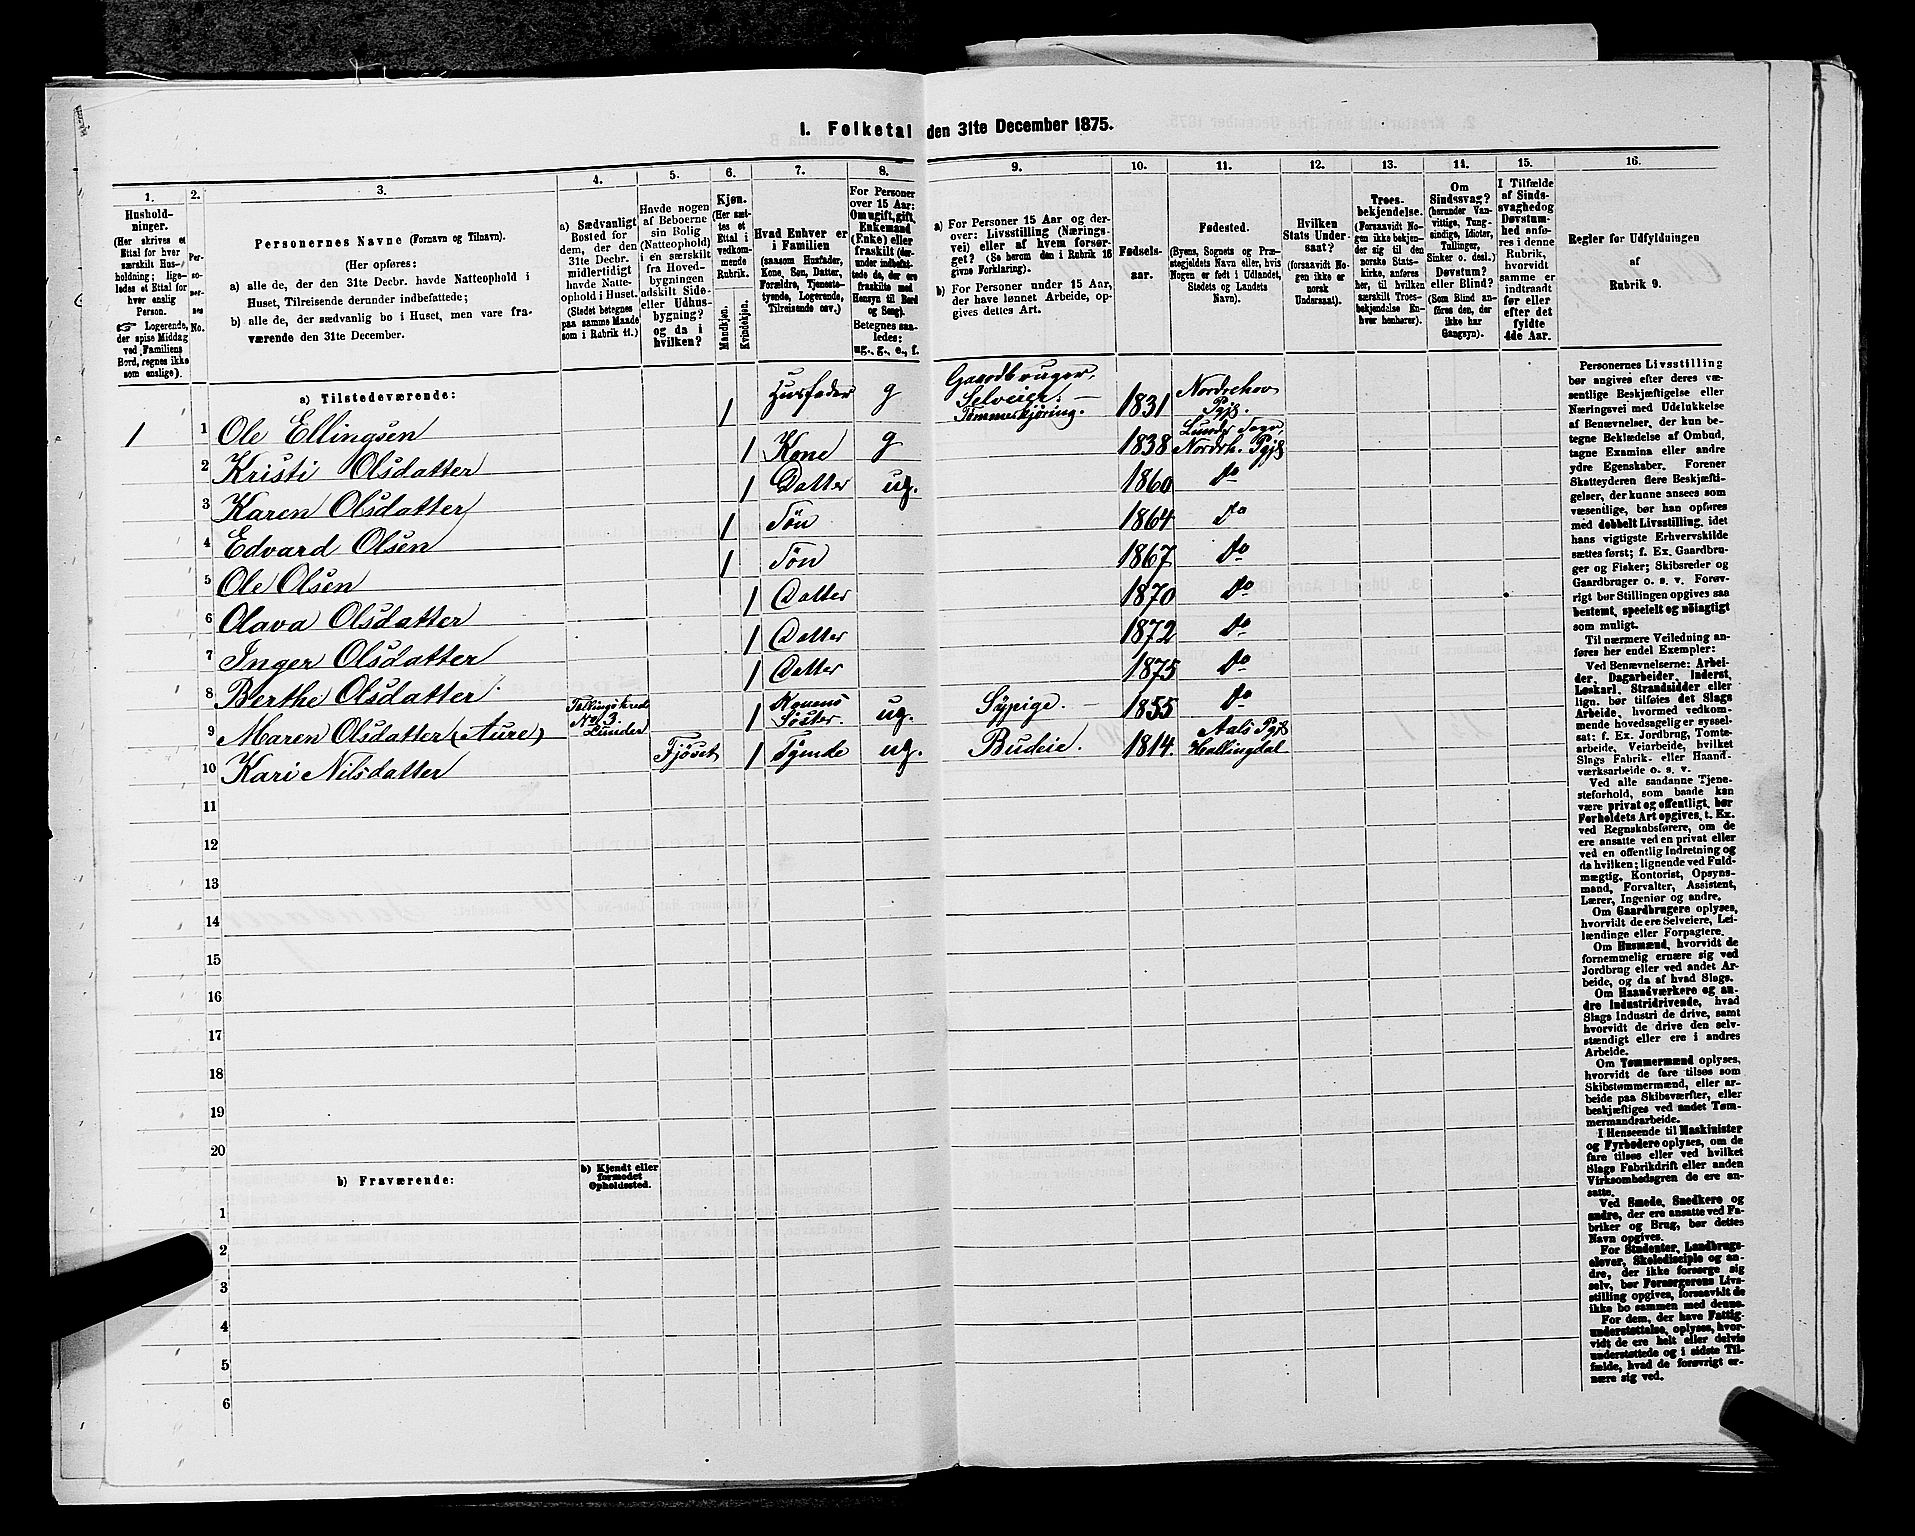 I. Folketal den 31te December 1875.
1.
Hushold-
ninger.
(Her skrives et
Ettal for hver
særskilt Hus-
holdning; lige-
ledes et Ettal for
hver enslig
Person.
☞ Logerende,
der spise Middag
ved Familiens
Bord, regnes ikke
som enslige).
2.
Per-
so-
ner-
nes
No.
3.
Personernes Navne (Fornavn og Tilnavn).
(Her opføres:
a) alle de, der den 31te Decbr. havde Natteophold i
Huset, Tilreisende derunder indbefattede;
b) alle de, der sædvanlig bo i Huset, men vare fra-
værende den 31te December.
4.
a) Sædvanligt
Bosted for
dem, der den
31te Decbr.
midlertidigt
havde Natte-
ophold i Huset.
(Stedet betegnes
paa samme Maade
som i Rubrik 11.)
5.
Havde nogen
af Beboerne
sin Bolig
(Natteophold)
i en særskilt
fra Hoved-
bygningen
adskilt Side-
eller Udhus-
bygning?
og da i
hvilken?
6.
Kjøn.
(Her sæt-
tes et
Ettal i
vedkom-
mende
Rubrik.
Mandkjøn.
Kvindekjøn.
7.
Hvad Enhver er
i Familien
(saasom Husfader,
Kone, Søn, Datter,
Forældre, Tjeneste-
tyende, Logerende,
Tilreisende osv.)
8.
For Personer
over 15 Aar:
Om ugift, gift,
Enkemand
(Enke) eller
fraskilt (der-
under indbefat-
tede de, der ere
fraskilte med
Hensyn til Bord
og Seng).
Betegnes saa-
ledes:
ug., g., e., f.
9.
a) For Personer 15 Aar og der-
over: Livsstilling (Nærings-
vei) eller af hvem forsør-
get? (Se herom den i Rubrik 16
givne Forklaring).
b) For Personer under 15 Aar,
der have lønnet Arbeide, op-
gives dettes Art.
10.
Fødsels-
aar.
11.
Fødested.
(Byens, Sognets og Præ-
stegjeldets Navn eller, hvis
Nogen er født i Udlandet,
Stedets og Landets
Navn).
12.
Hvilken
Stats Under-
saat?
(forsaavidt No-
gen ikke er
norsk
Undersaat).
13.
Troes-
bekjendelse.
(Forsaavidt No-
gen ikke bekjen-
der sig til den
norske Stats-
kirke, anføres
her, til hvilken
særskilt Troes-
bekjendelse En-
hver henhører).
14.
Om
Sindssvag?
(herunder Van-
vittige, Tung-
sindige, Idioter,
Tullinger,
Sinker o. desl.)
Døvstum?
eller Blind?
(Som Blind an-
føres den, der
ikke har
Gangsyn).
15.
I Tilfælde
af Sinds-
svaghed og
Døvstum-
hed anføres
i denne
Rubrik,
hvorvidt
samme er
indtraadt
før eller
efter det
fyldte
4de Aar.
16.
Regler for Udfyldningen
af
Rubrik 9.
a) Tilstedeværende:
1 1 Ole Ellingsen 1 Husfader g Gaardbruger, Selveier. — Tømmerkjøring. 1831 Nordrehov Pgjl.
2 Kristi Olsdatter 1 Kone g 1838 Lunder Sogn, Nordrh. Pgjl
3 Karen Olsdatter 1 Datter ug. 1860 do
4 Edvard Olsen 1 Søn 1864 do
5 Ole Olsen 1 Søn 1867 do
6 Olava Olsdatter 1 Datter 1870 do
7 Inger Olsdatter 1 Datter 1872 do
8 Berthe Olsdatter 1 Datter 1875 do
9 Maren Olsdatter (Aure) Tellingskred No 3. Lunder 1 Konens Søster. ug. Sypige. — 1855 do
10 Kari Nilsdatter Fjøset 1 Tjende ug. Budeie. 1814. Aals Pgjl Hallingdal
11
12
13
14
15
16
17
18
19
20
b) Fraværende:
b) Kjendt eller
formodet
Opholdssted.
1
2
3
4
5
6
Personernes Livsstilling
bør angives efter deres væ-
sentlige Beskjæftigelse eller
Næringsvei med Udelukkelse
af Benævnelser, der kun be-
tegne Beklædelse af Ombud,
tagne Examina eller andre
ydre Egenskaber. Forener
Skatteyderen flere Beskjæfti-
gelser, der kunne ansees som
væsentlige, bør han opføres
med dobbelt Livsstilling, idet
hans vigtigste Erhvervskilde
sættes først; f. Ex. Gaardbru-
ger og Fisker; Skibsreder og
Gaardbruger o. s. v. Forøv-
rigt bør Stillingen opgives saa
bestemt, specielt og nøiagtigt
som muligt.
Til nærmere Veiledning an-
føres her endel Exempler:
Ved Benævnelserne: Arbei-
der, Dagarbeider, Inderst,
Løskarl, Strandsidder eller
lign. bør tilføies det Slags
Arbeide, hvormed vedkom-
mende hovedsagelig er syssel-
sat; f. Ex. Jordbrug, Tomte-
arbeide, Veiarbeide, hvilket
Slags Fabrik- eller Haand-
værksarbeide o. s. v.
Ved alle saadanne Tjene-
steforhold, som baade kan
være privat og offentligt, bør
Forholdets Art opgives, t. Ex.
ved Regnskabsførere, om de
ere ansatte ved en privat eller
ved en offentlig Indretning og
da hvilken; lignende ved Fuld-
mægtig, Kontorist, Opsyns-
mand, Forvalter, Assistent,
Lærer, Ingeniør og andre.
Om Gaardbrugere oplyses,
hvorvidt de ere Selveiere, Lei-
lændinge eller Forpagtere.
Om Husmænd, hvorvidt de
fornemmelig ernære sig ved
Jordbrug eller ved andet Ar-
beide, og da af hvad Slags.
Om Haandværkere og an-
dre Industridrivende, hvad
Slags Industri de drive, samt
hvorvidt de drive den selv-
stændigt eller ere i andres
Arbeide.
Om Tømmermænd oplyses,
hvorvidt de fare tilsøs som
Skibstømmermænd, eller ar-
beide paa Skibsværfter, eller
beskjæftiges ved andet Tøm-
mermandsarbeide.
I Henseende til Maskinister
og Fyrbødere oplyses, om de
fare tilsøs eller ved hvilket
Slags Fabrikdrift eller anden
Virksomhedsgren de ere an-
satte.
Ved Smede, Snedkere og
andre, der ere ansatte ved Fa-
briker og Brug, bør dettes
Navn opgives.
For Studenter, Landbrugs-
elever, Skoledisciple og an-
dre, der ikke forsørge sig
selv, bør Forsørgerens Livs-
stilling opgives, forsaavidt de
ikke bo sammen med denne.
For dem, der have Fattig-
understøttelse, oplyses, hvor-
vidt de ere helt eller delvis
understøttede og i sidste Til-
fælde, hvad de forøvrigt er-
nære sig ved.